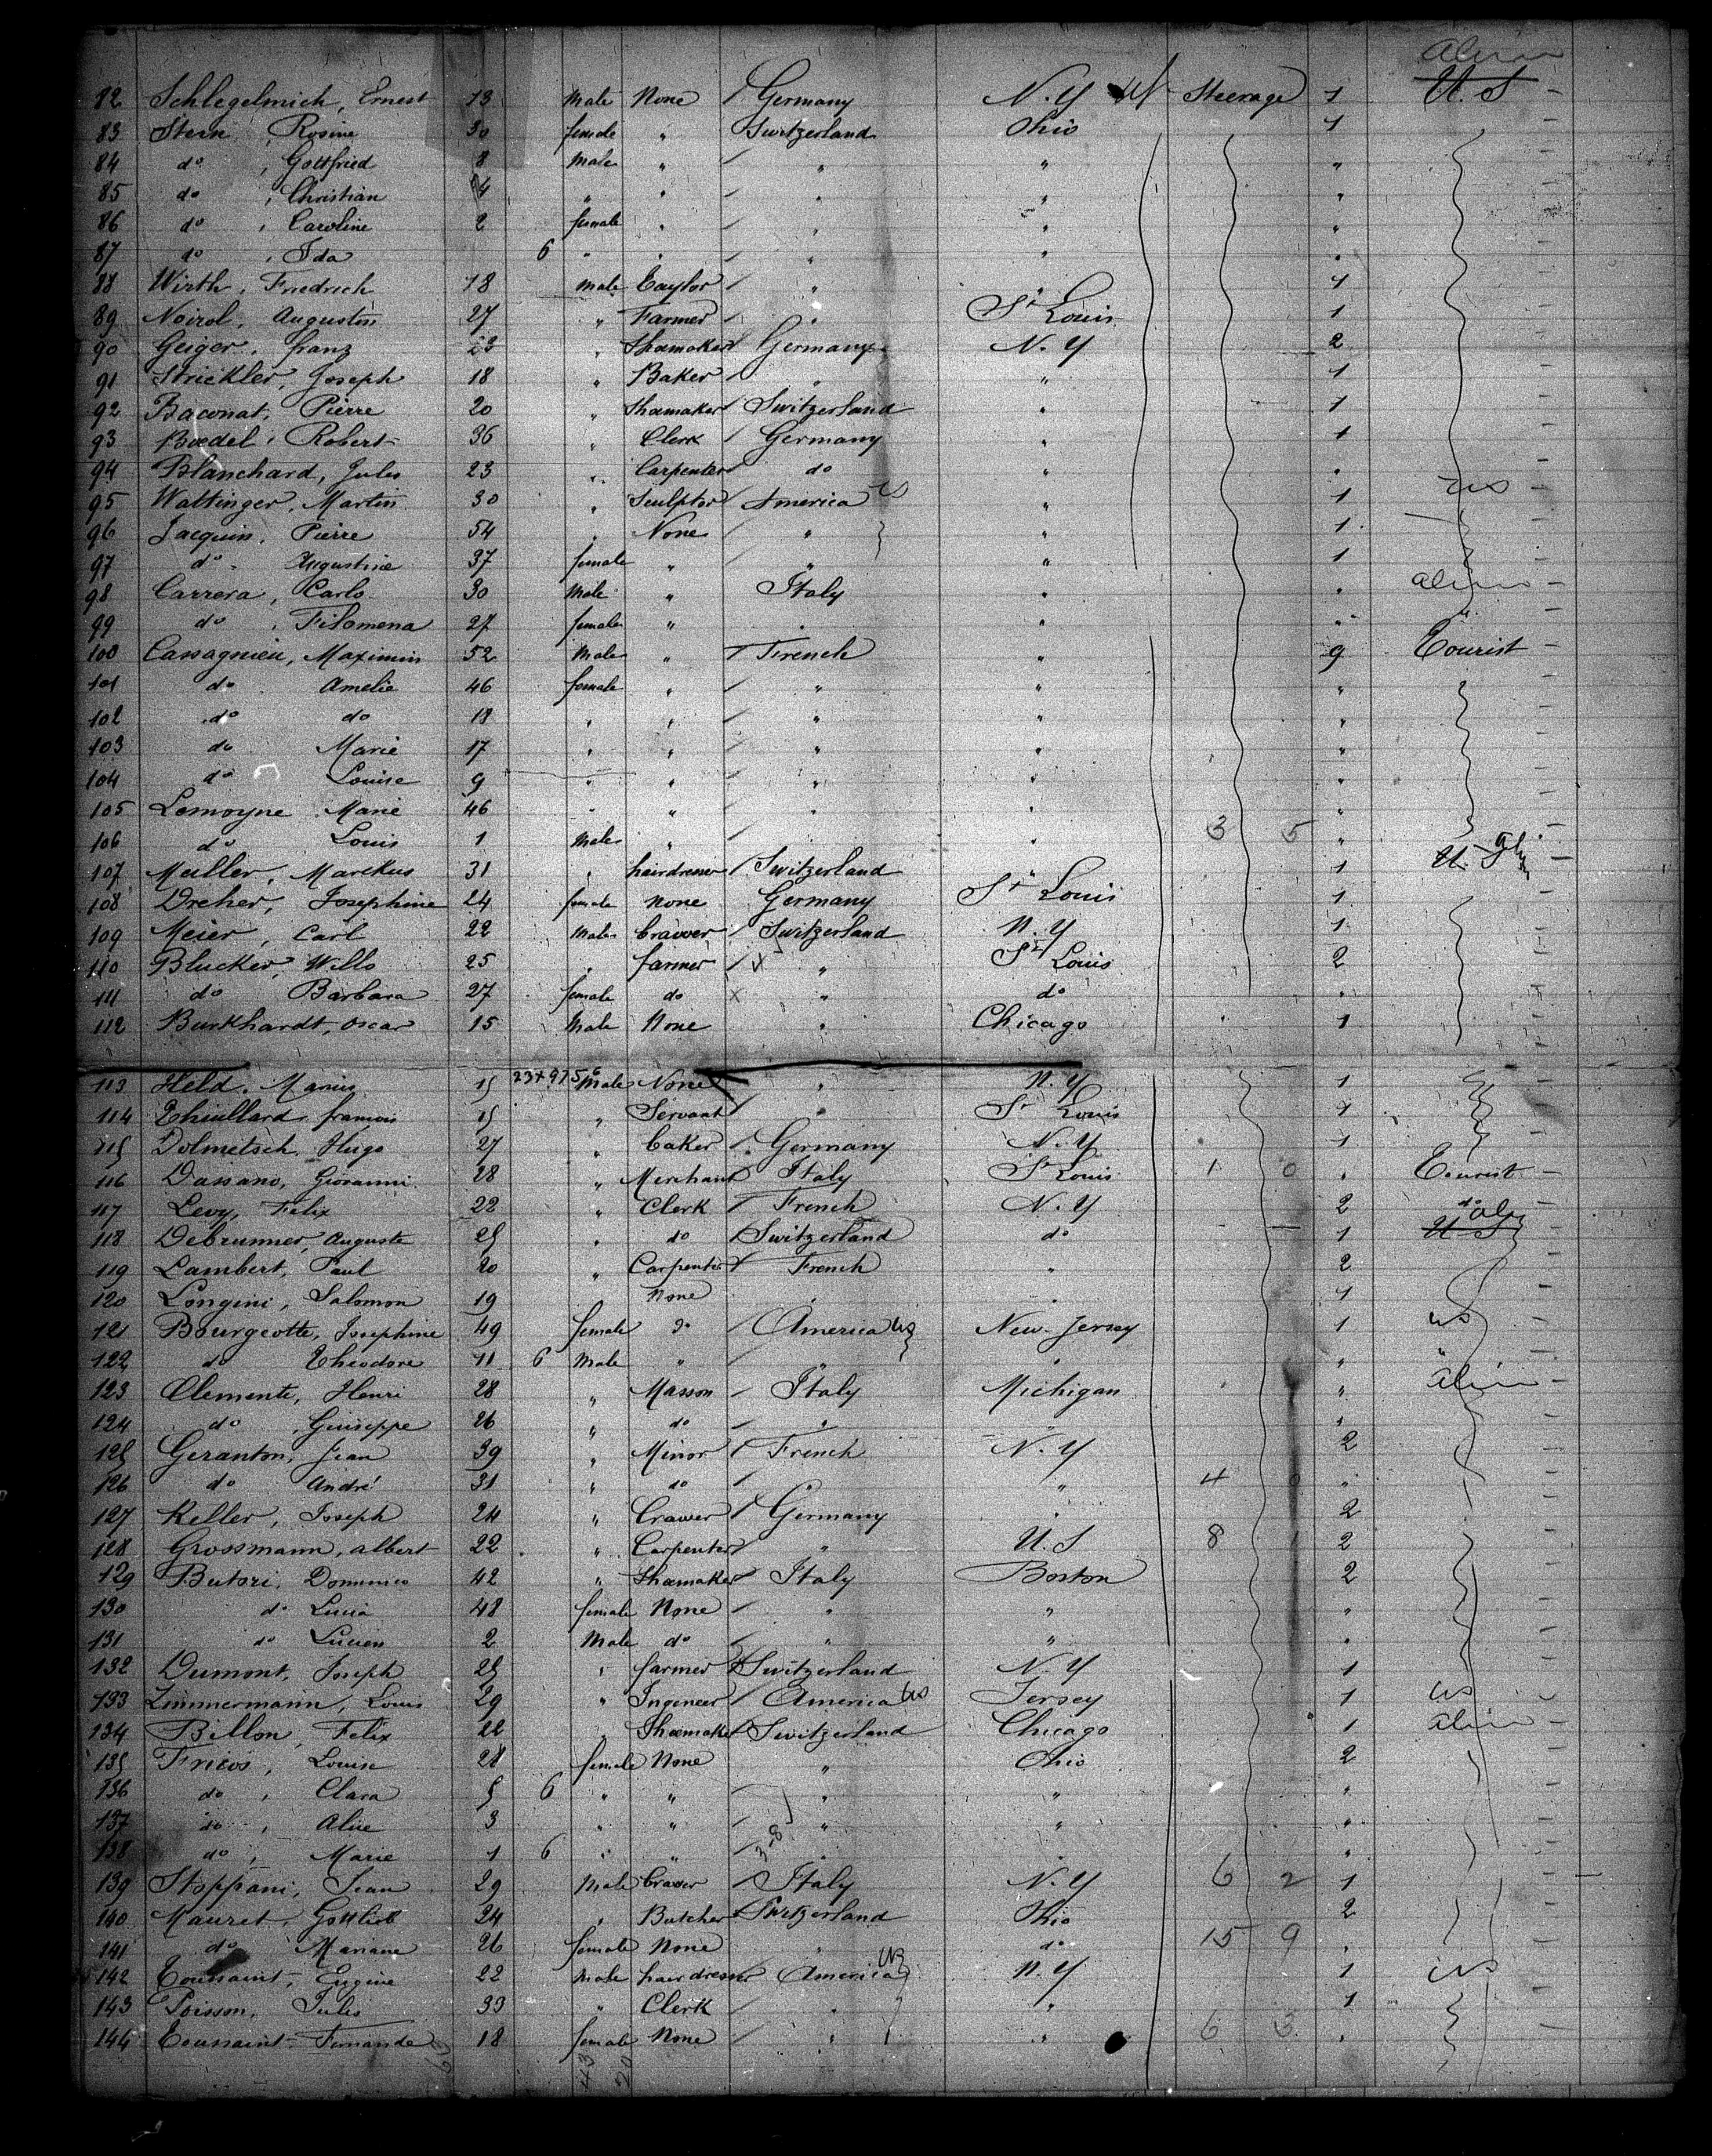 alien
82 Schlegelmich, Ernest 13 Male None / Germany N.Y Steerage 1 U.S -
83 Stern, Rosine 30 female " Switzerland Ohio 1 -
84 do , Gottfried 8 Male " / " " " -
85 do , Christian 4 " " / " " " -
86 do , Caroline 2 female " / " " " -
87 do , Ida 6 " " / " " " -
88 Wirth, Friedrich 18 male Taylor / " " 1 -
89 Noirol, Augustin 27 " Farmer / " St Louis 1 -
90 Geiger, franz 23 " Shoemaker / Germany N.Y 2 -
91 Strickler, Joseph 18 " Baker / " " 1 -
92 Baconat, Pierre 20 " Shoemaker / Switzerland " 1 -
93 Boedel, Robert 36 " Clerk / Germany " 1 -
94 Blanchard, Jules 23 " Carpenter / do " " -
95 Wattinger, Martin 30 " Sculptor / America US " 1 US -
96 Jacquin, Pierre 54 " None / " " 1 -
97 do Augustine 37 female " / " " 1 -
98 Carrera, Carlo 30 Male " Italy " " alien -
99 do , Filomena 27 female " " " " " -
100 Cassagnieu, Maximin 52 Male " / French " 9 Tourist -
101 do Amelie 46 female " / " " " -
102 do do 18 " " / " " " -
103 do Marie 17 " " / " " " -
104 do Louise 9 " " / " " " -
105 Lemoyne Marie 46 " " / " " " -
106 do Louis 1 Male " / " " 3 5 " -
107 Muller, Markus 31 " hairdresser / Switzerland " 1 U.S -
108 Dreher, Josephine 24 female none Germany St Louis 1 -
109 Meier, Carl 22 Male / Switzerland N.Y 1 -
110 Blucker, Wills 25 " farmer / x " St Louis 2 -
111 do Barbara 27 female do x " do " -
112 Burkhardt, Oscar 15 Male None " Chicago 1 -
113 Held, Marius 15 Male None " N.Y 1 -
114 Thiullard, francois 15 " Servant / " St Louis 1 -
115 Dolmetsch, Hugo 27 " baker / Germany N.Y 1 -
116 Dassano, Giovanni 28 " Merchant Italy St Louis 1 0 " Tourist -
117 Levy, Felix 22 " Clerk / French N.Y 2 do -
118 Debrunner, Auguste 25 " do / Switzerland do 1 U.S -
119 Lambert, Paul 20 " Carpenter / French " 2 -
120 Longini, Salomon 19 None " " 1 -
121 Bourgeotte, Josephine 49 female do / America US New-Jersey 1 US -
122 do Theodore 11 6 Male " / " " " " -
123 Clemente, Henri 28 " Masson / Italy Michigan " alien -
124 do , Guiseppe 26 " do / " " " -
125 Geranton, Jean 39 " Minor / French N.Y 2 -
126 do André 31 " do / " 4 0 " -
127 Keller, Joseph 24 " Crawer / Germany " 2 -
128 Grossmann, albert 22 " Carpenter / " U.S 8 1 2 -
129 Butori, Domenico 42 " Shoemaker / Italy Boston 2 -
130 do Lucia 48 female None / " " " -
131 do Lucien 2 Male do / " " " -
132 Dumont, Joseph 25 " farmer Switzerland N.Y 1 -
133 Zimmermann, Louis 29 " Ingeneer / America US Jersey 1 US -
134 Billon, Felix 22 " Shoemaker / Switzerland Chicago 1 alien -
135 Louise 28 female None " Ohio 2 -
136 do , Clara 5 6 " " / " " " -
137 do , Alice 3 " " / " " " -
138 do , Marie 1 6 " " / 3-8 " " -
139 Stoppani, Jean 29 Male / Italy N.Y 6 2 1 -
140 Mauret, Gottlieb 24 " Butcher / Switzerland Ohio 2 -
141 do Mariane 26 female None " do 15 9 " -
142 Toussaint, Eugène 22 Male hairdresser America US N.Y 1 US -
143 Poisson, Jules 33 " Clerk / " " 1 -
144 Toussaint Fernande 18 female None / " " 6 3 " -
63 43 20